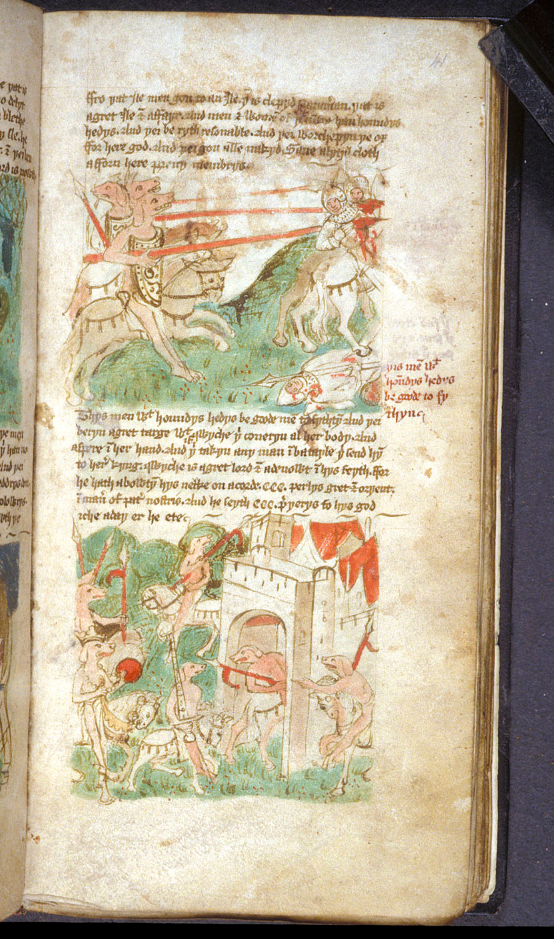 ffro yat Ile men gon to an Ile yt is clepyd yat is
agret Ile & affayr and men & women of han houndys
hedys. And yei be ryth resonable. And yei worchepyn ye ox
ffor here god. And yei gon alle nakyd. Saue alytyl cloth
afforn here preuy membrys.
yis mē wt
hoūdys hedys
be goode to fy
thyng
Thys men wt houndys hedys be goode men to fythtyn And yei
beryn agret targe wt ye qwyche yt coueryn al her body. And
a spere in her hand. And if takyn any man in batayle yei send hym
to her kyng. qwyche is agret lord & in hys feyth. ffor
he hath abowtyn hys nekke on acorde CCC. perlys gret & oryent.
in maner of pater nostris. And he seyth CCC. prayerys to hys god
iche aday er he ete
41